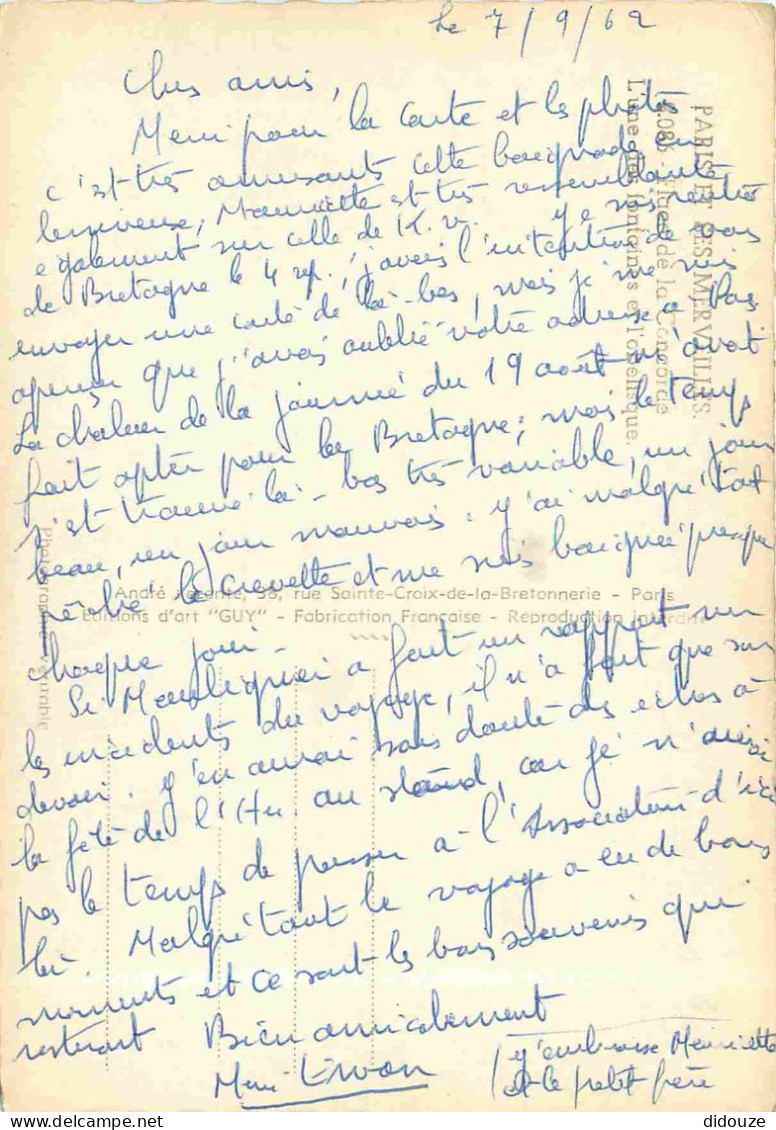 le 7/9/62
Chers amis,
Merci pour la carte et les photos
c'est très amusants cette baignade en
lessiveuse, Mauricette est très ressemblante
également sur celle de K.V. Je suis rentrée
de Bretagne le 4 sep., j'avais l'intention de vous
envoyer une carte de là-bas, mais je me suis
aperçu que j'avais oublié votre adresse à Paris
La chaleur de la journée du 19 août m'avait
fait opter pour la Bretagne; mais le temps
s'est trouvé là-bas très variable, un jour
beau, un jour mauvais. J'ai malgré tout
pêché la crevette et me suis baignée presque
chaque jour.
Si a fait un rapport sur
les incidents du voyage, il n'a fait que son
devoir. J'en aurai sans doute des échos à
la fête de l'Hu. au stand, car je n'aurai
pas le temps de passer à l'Association d'ici
là. Malgré tout le voyage a eu de bons
moments et ce sont les bons souvenirs qui
restent Bien amicalement
Erwan
J'embrasse
et le petit frère
PARIS ET SES MERVEILLES.
Place de la Concorde
L'une des fontaines et l'obélisque.
André Leconte, 38, rue Sainte-Croix-de-la-Bretonnerie - Paris
Editions d'art "GUY" - Fabrication Française - Reproduction interdite
Photographie véritable
didouze